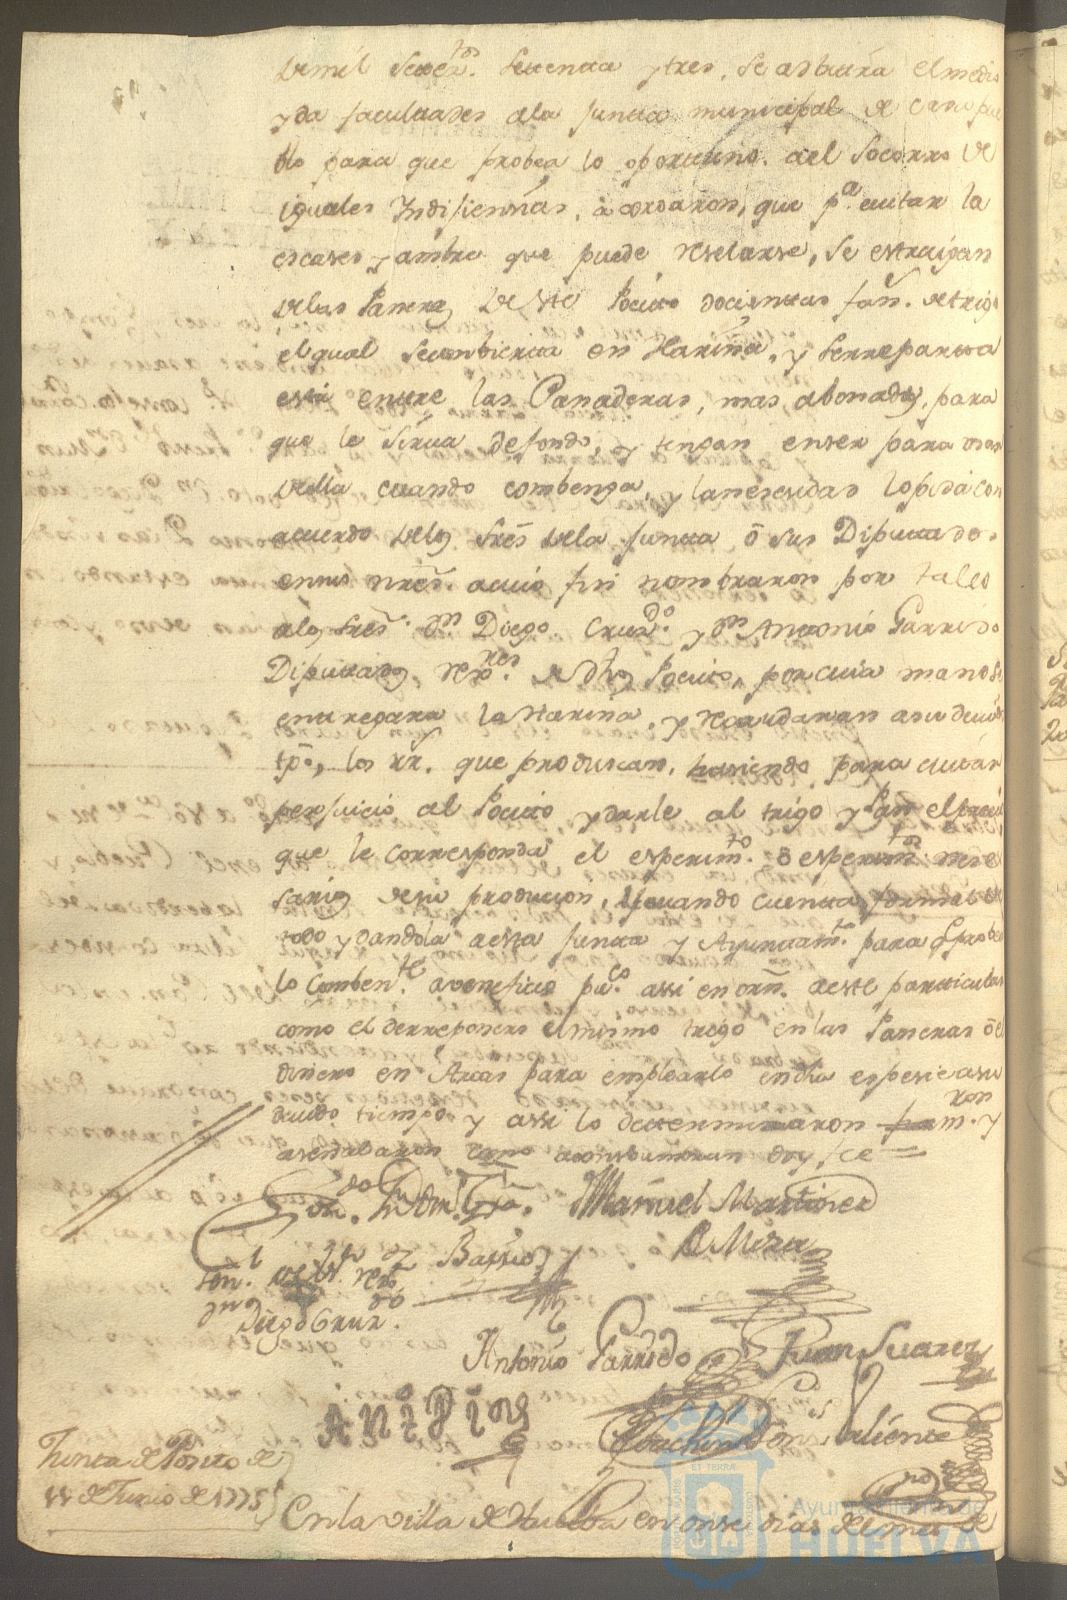 de mil setez.tos setenta y tres, se arbitrara el medio
y da facultades a la Junta municipal de cada pue
blo para que probea lo oportuno. del socorro de
iguales Indisiencias, acordaron, que p.a evitar la
escases y ambre que puede reselarse, se estraigan
de las Paneras de este Pocito docientas fan.s de trigo
el qual se combierta en Harina, y se rreparta
esta entre las Panaderas, mas abonadas, para
que le sirva de fondo, y tengan enser para usar
della cuando combenga, y la nesesidad lo pida con
acuerdo de los Sres de la Junta o sus Diputados
a cuio fin nombraron por tales
a los Sres. Dn Diego Cruz.do y Dn Antonio Garrido
Diputados de dho Pocito, por cuia mano se
entregara la Harina, y recaudaran a su devido
tpo, los rr. que produscan, haviendo para evitar
perjuicio al Pocito y darle al trigo y Pan el precio
que le corresponda el esperim.to o esperim.tos nese
sarios de su producion, formando cuenta formal de
todo y dandola a esta Junta y Ayuntam.to para q probea
lo comben.te a veneficio pu.co assi en orn. a este particular
como el de rreponers el mismo trigo en las Paneras o el
dinero en Arcas para emplearlo en dha espesie a su
devido tiempo y assi lo determinaron firm.ron y
señalaron como acostumbran doy fee =
Manuel Martines
de Mora
Barrio
Diego Cruz.do
Antonio Garrido Juan Suarez
Joachin Valiente
Junta de Posito de
11 de Junio de 1775
En la villa de Huelva en onse dias del mes de
ET TERRAE
Ayuntamiento de
HUELVA